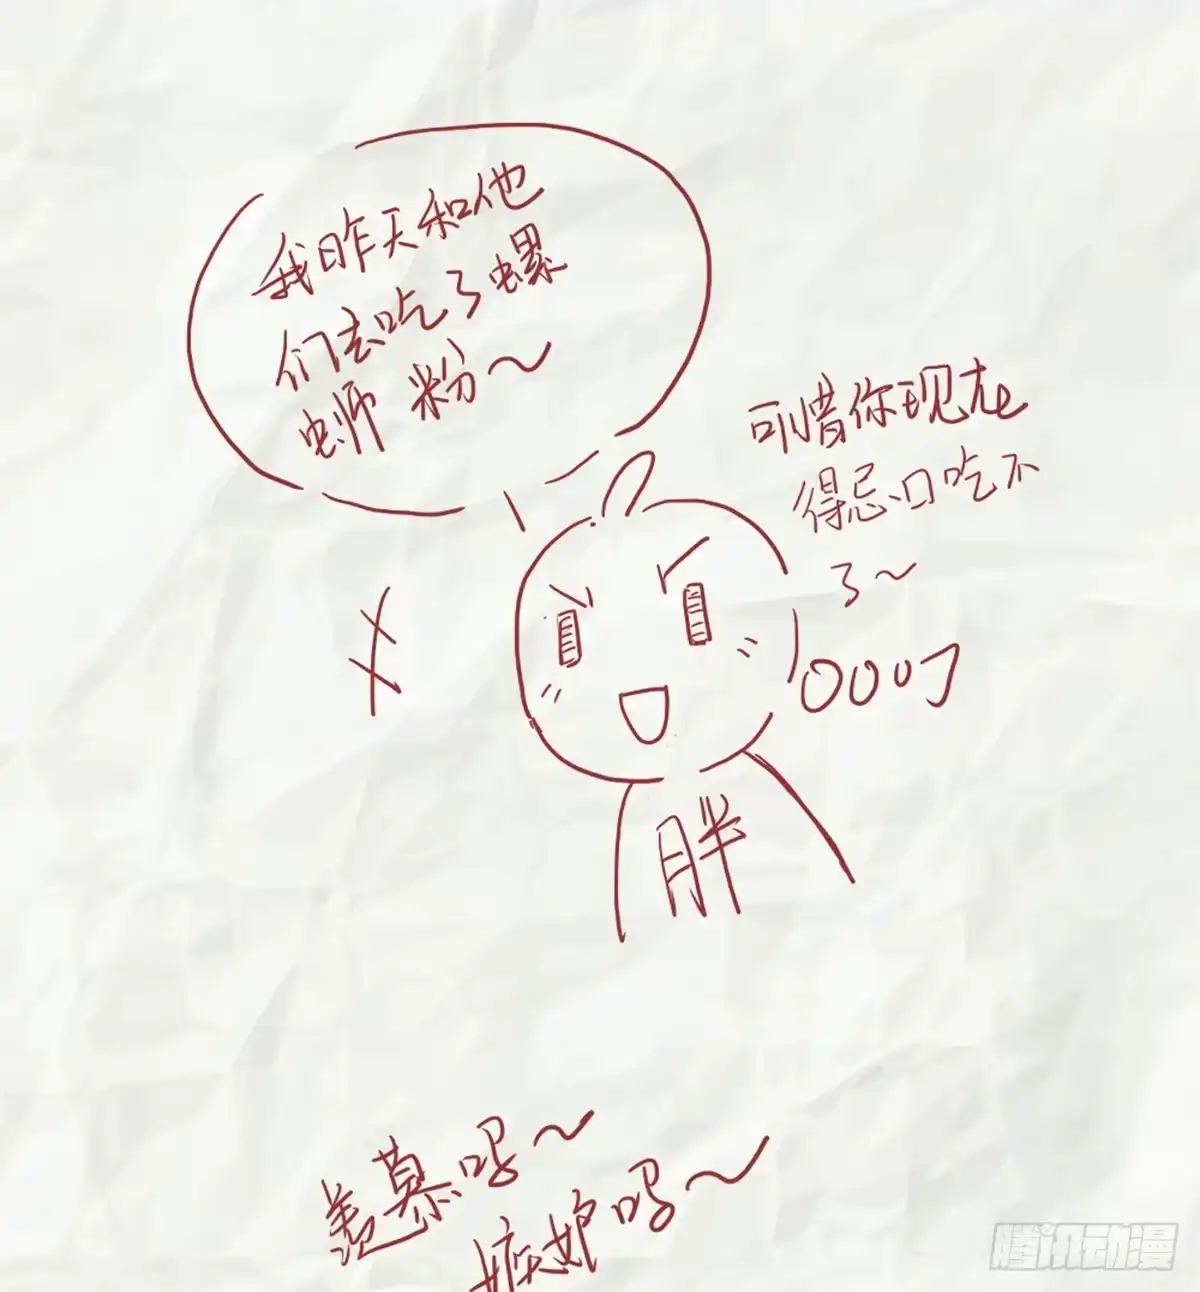 我昨天和他
们去吃了螺
蛳粉～
可惜你现在
得忌口吃不
了～
叮
胖
羡慕吗～
嫉妒吗～
腾讯动漫